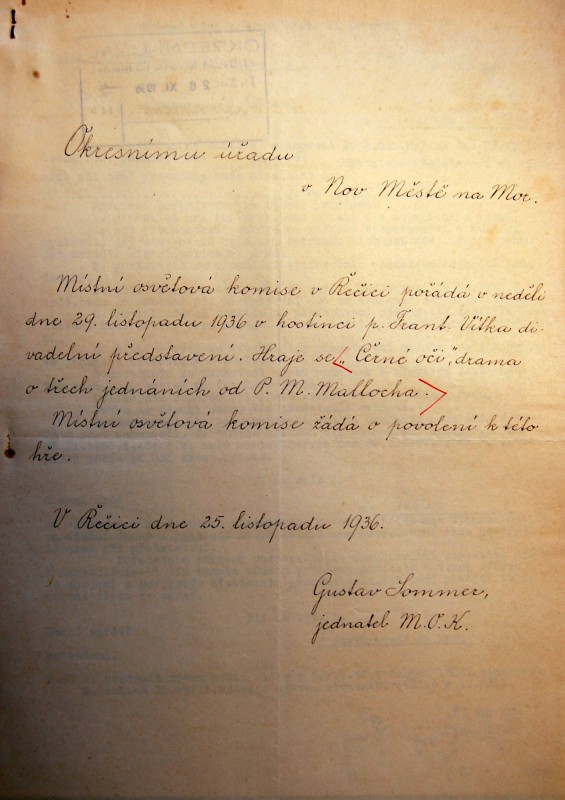 Okresnímu úřadu
v Nov Městě na Mor.
Místní osvětová komise v Řečici pořádá v neděli
dne 29. listopadu 1936 v hostinci p. Frant. Vítka di-
vadelní představení. Hraje se „Černé oči", drama
o třech jednáních od P. M. Mallocha.
Místní osvětová komise žádá o povolení k této
hře.
V Řečici dne 25. listopadu 1936.
Gustav Sommer,
jednatel M. O. K.